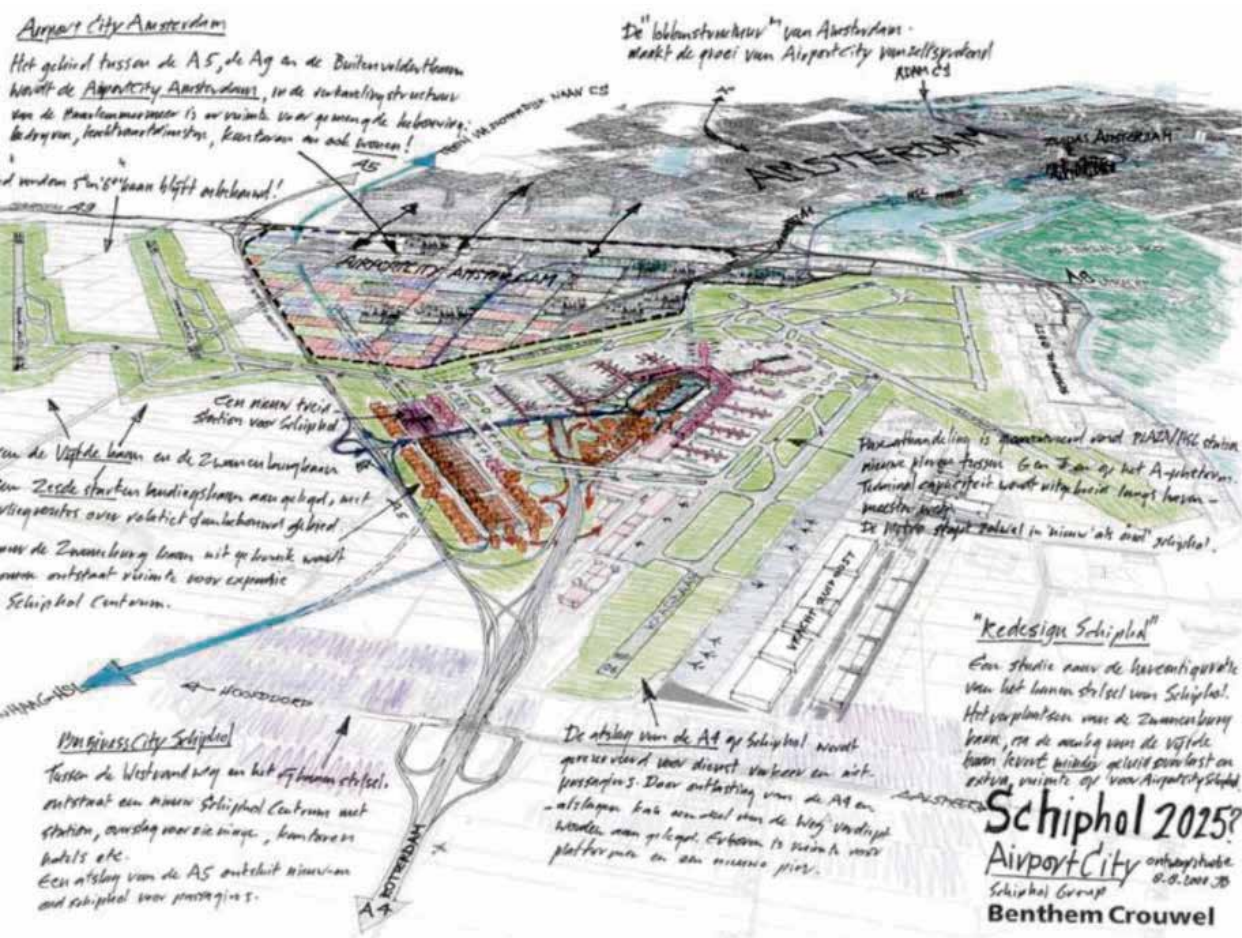 Airport City Amsterdam
Het gebied tussen de A5, de A9 en de Buitenveldertbaan
wordt de AirportCity Amsterdam, in de verkavelingstructuur
van de Haarlemmermeer is er ruimte voor gemengde bebouwing:
bedrijven, luchtvaartdiensten, kantoren en ook wonen!
rondom 5e en 6e baan blijft onbebouwd!
De "lobbenstructuur" van Amsterdam
maakt de groei van AirportCity vanzelfsprekend
NAAR CS
A5
A9
AMSTERDAM
AMSTERDAM
AIRPORTCITY AMSTERDAM
A9
SCHIPHOL OOST
Een nieuw trein-
station voor Schiphol
de Vijfde baan en de Zwanenburgbaan
Zesde start en landingsbaan aangelegd, met
vliegroutes over relatief dunbebouwd gebied
de Zwanenburg baan uit gebruik wordt
ontstaat ruimte voor expansie
Schiphol Centrum.
A5
is geconcentreerd rond PLAZA/HSL station
nieuwe pieren tussen G en op het A-platform.
Terminal capaciteit wordt uitgebreid langs haven-
meester weg.
De metro stopt zowel in 'nieuw' als 'oud' Schiphol.
HSL
HOOFDDORP
VRACHT ZUID OOST
Business City Schiphol
Tussen de Westrandweg en het banenstelsel.
ontstaat een nieuw Schiphol Centrum met
station, kantoren
hotels etc.
Een afslag van de A5 ontsluit nieuw en
oud schiphol voor passagiers.
De afslag van de A4 op Schiphol wordt
gereserveerd voor dienst verkeer en niet-
passagiers. Door ontlasting van de A4 en
-afslagen kan een deel van de weg verdiept
worden aangelegd. Erboven is ruimte voor
platformen en een nieuwe pier.
AALSMEER
ROTTERDAM
A4
"Redesign Schiphol"
Een studie naar de
van het banen stelsel van Schiphol.
Het verplaatsen van de Zwanenburg
baan, en de aanleg van de vijfde
baan levert minder geluid overlast en
extra ruimte op voor AirportCity Schiphol
Schiphol 2025?
AirportCity
Schiphol Group
Benthem Crouwel